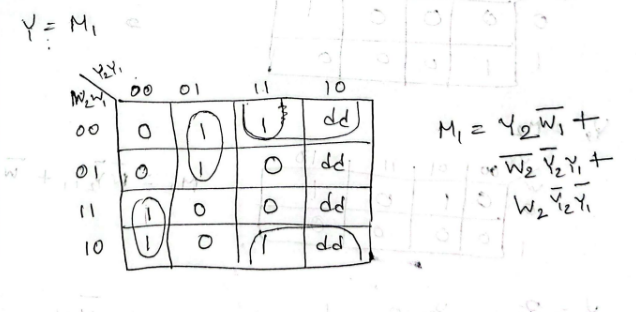 Y = M₁
Y₂Y₁
W₂W₁
00 01 11 10
00 0 1 1 dd
01 0 1 0 dd
11 1 0 0 dd
10 1 0 1 dd
M₁ = Y₂ W̅₁ +
W̅₂ Y̅₂ Y₁ +
W₂ Y̅₂ Y̅₁